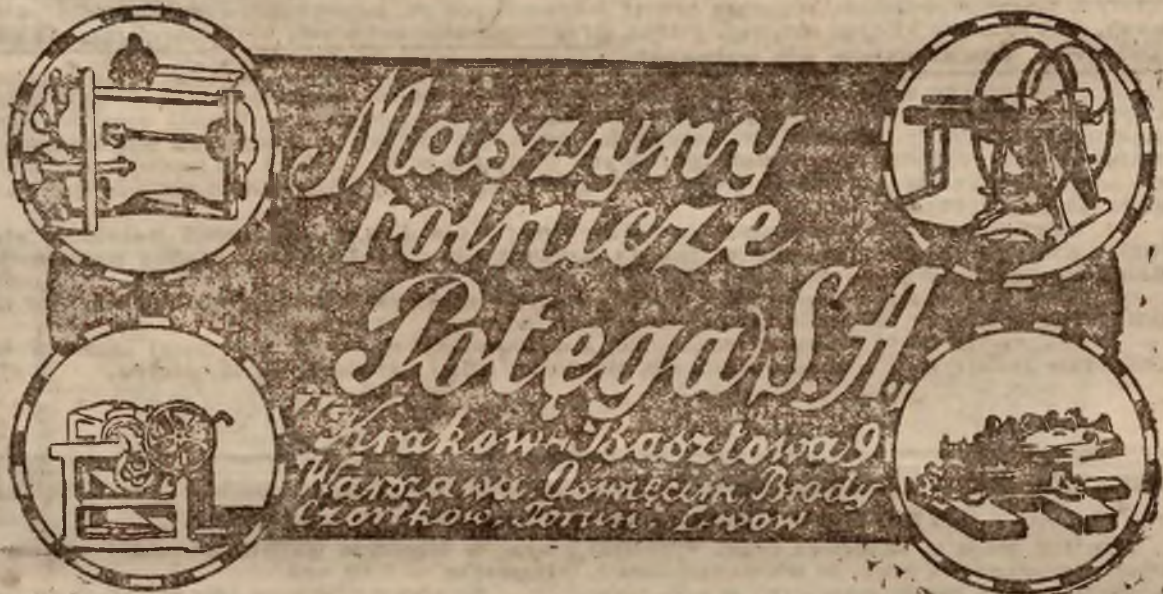 Maszyny
rolnicze
Potęga S.A.
Kraków - Basztowa 9
Warszawa Oświęcim, Brody
Czortków, Toruń, Lwów